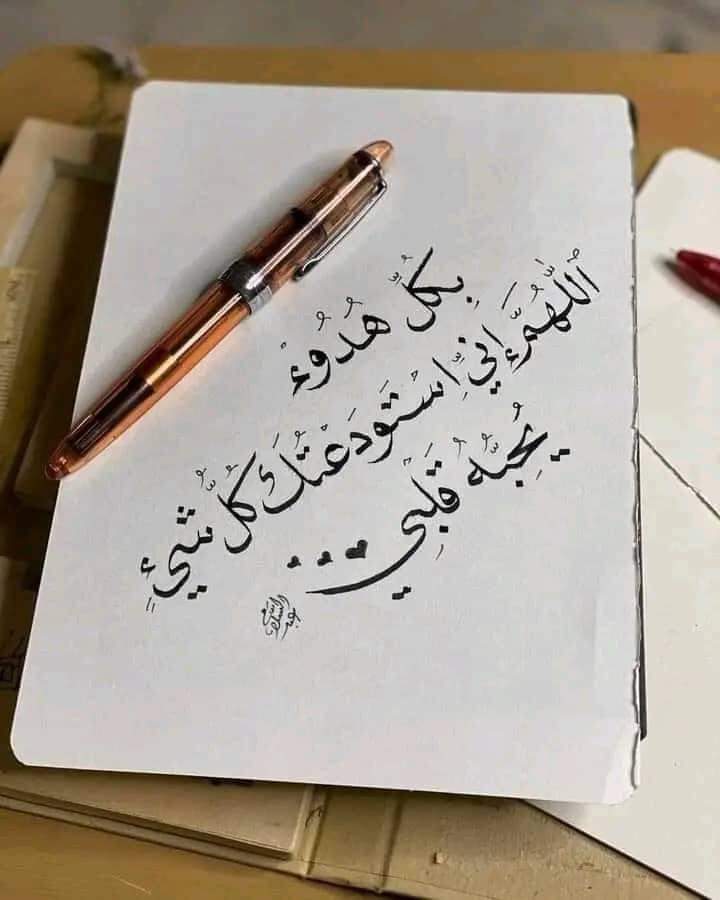 بِكُلِّ هُدُوءْ
اَللّٰهُمَّ إِنِّي اِسْتَودَعْتُكَ كُلَّ شَيْءٍ
يُحِبُّه قَلْبِي...